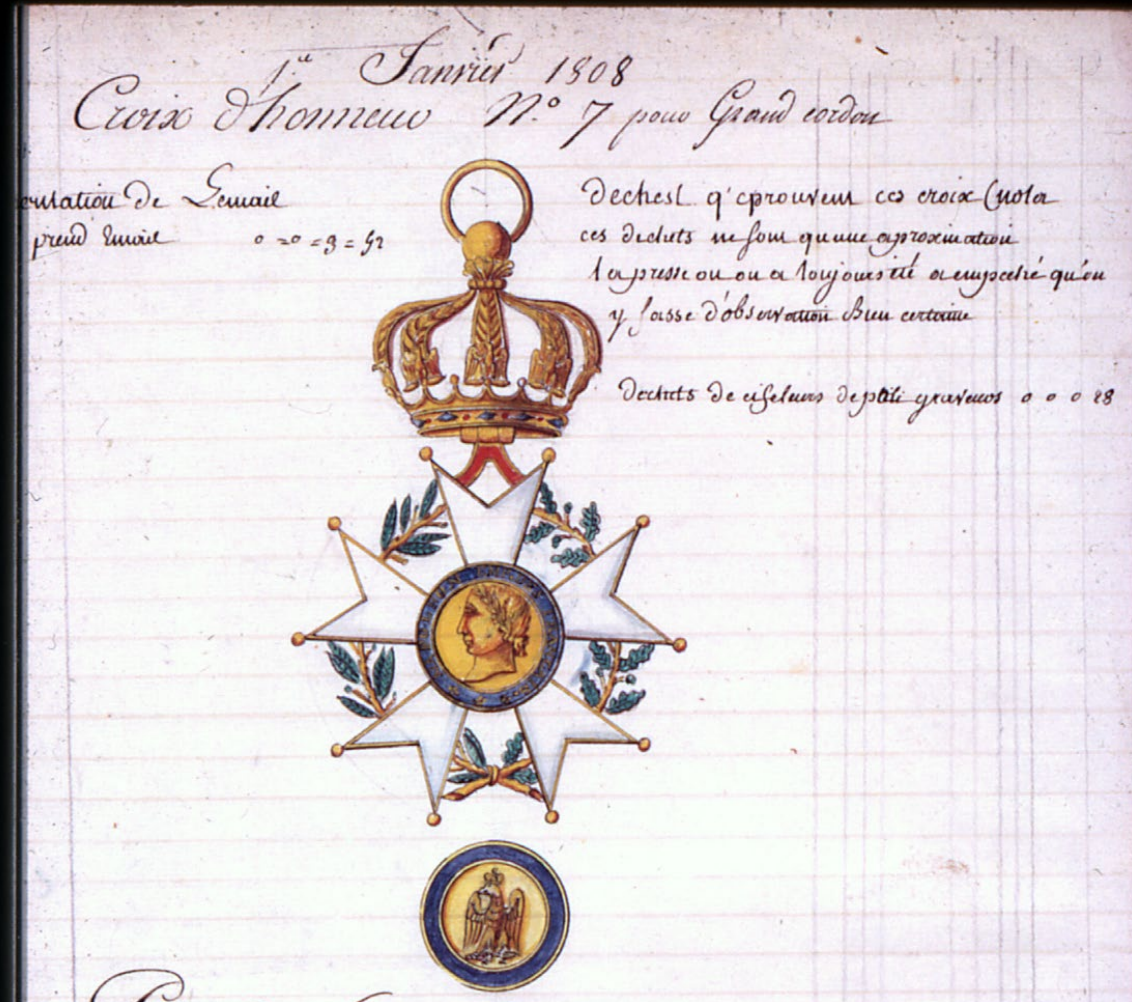 1er Janvier 1808
Croix d'honneur N.o 7 pour Grand cordon
entation de Lemail
prend Emaie 0 =0 =3 = 52
dechest q'eprouvent ces croix (nota
ces dechets ne sont qu'une aproximation
la presse ou on a toujours été a empeché qu'on
y fasse d'observation bien certaine
dechets de ciseleurs de petits graveurs 0 0 0 28